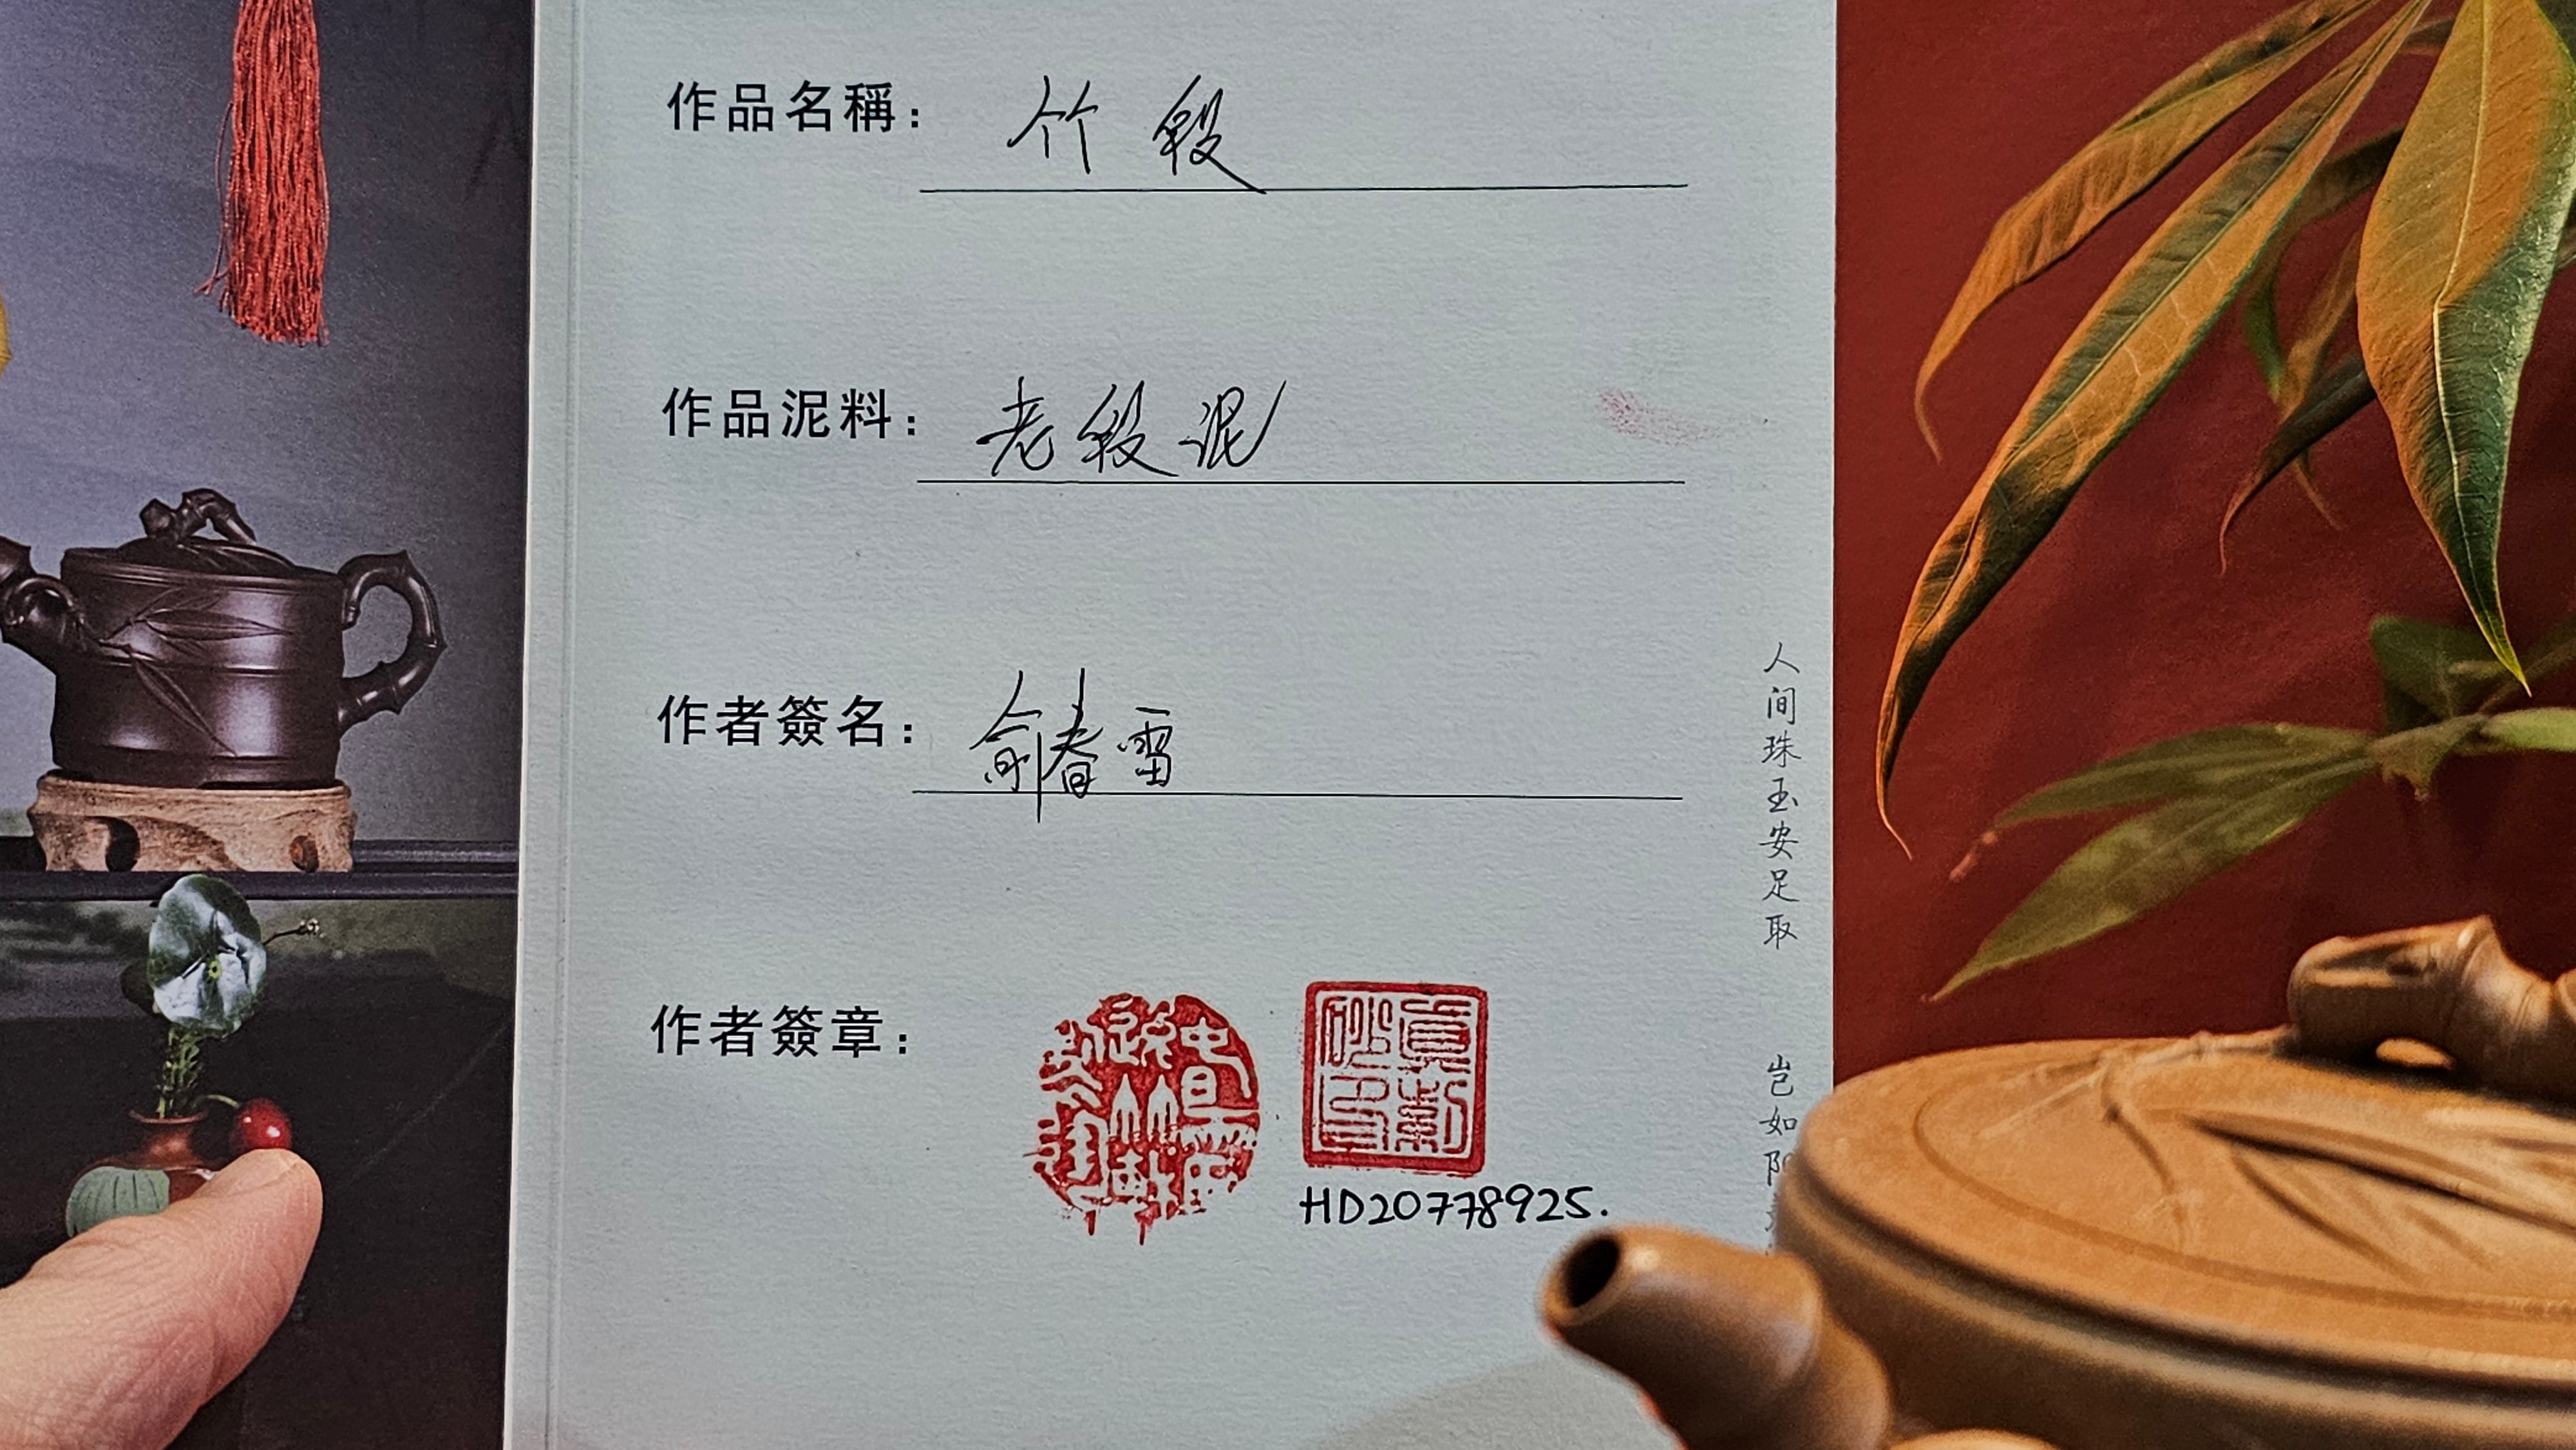 作品名稱： 竹段
作品泥料： 老段泥
作者簽名： 俞春雷
作者簽章：
HD20778925.
人间珠玉安足取
岂如阳